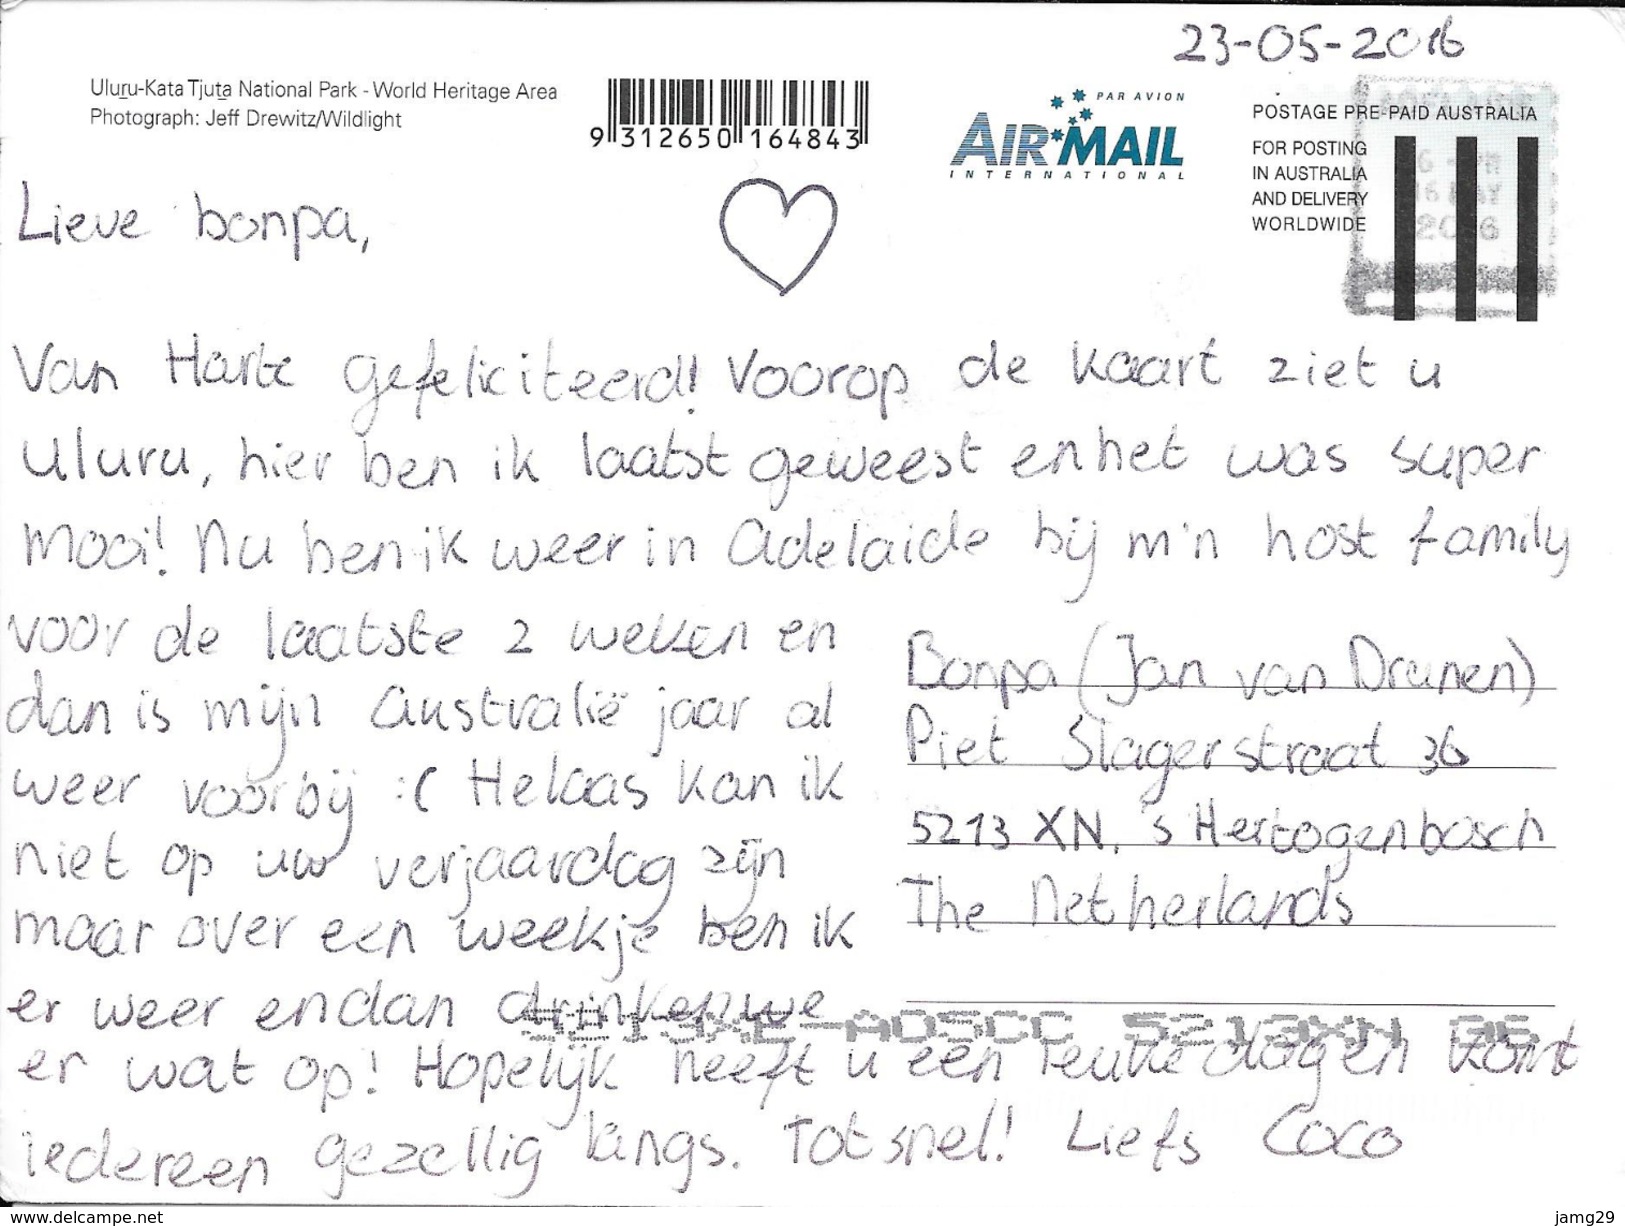 23-05-2016
Uluru-Kata Tjuta National Park - World Heritage Area
Photograph: Jeff Drewitz/Wildlight
9 312650 164843
PAR AVION
AIR MAIL
INTERNATIONAL
POSTAGE PRE-PAID AUSTRALIA
FOR POSTING
IN AUSTRALIA
AND DELIVERY
WORLDWIDE
16 MAY
2016
Lieve bonpa,
Van Harte gefeliciteerd! Voorop de kaart ziet u
Uluru, hier ben ik laatst geweest en het was super
mooi! Nu ben ik weer in Adelaide bij m'n host family
voor de laatste 2 weken en
dan is mijn Australië jaar al
weer voorbij :( Helaas kan ik
niet op uw verjaardag zijn
maar over een weekje ben ik
er weer en dan drinken we
er wat op! Hopelijk heeft u een leuke dag en komt
iedereen gezellig langs. Tot snel! Liefs Coco
Bonpa (Jan van Drunen)
Piet Slagerstraat 36
5213 XN, 's Hertogenbosch
The Netherlands
5213XN 36
www.delcampe.net
jamg29